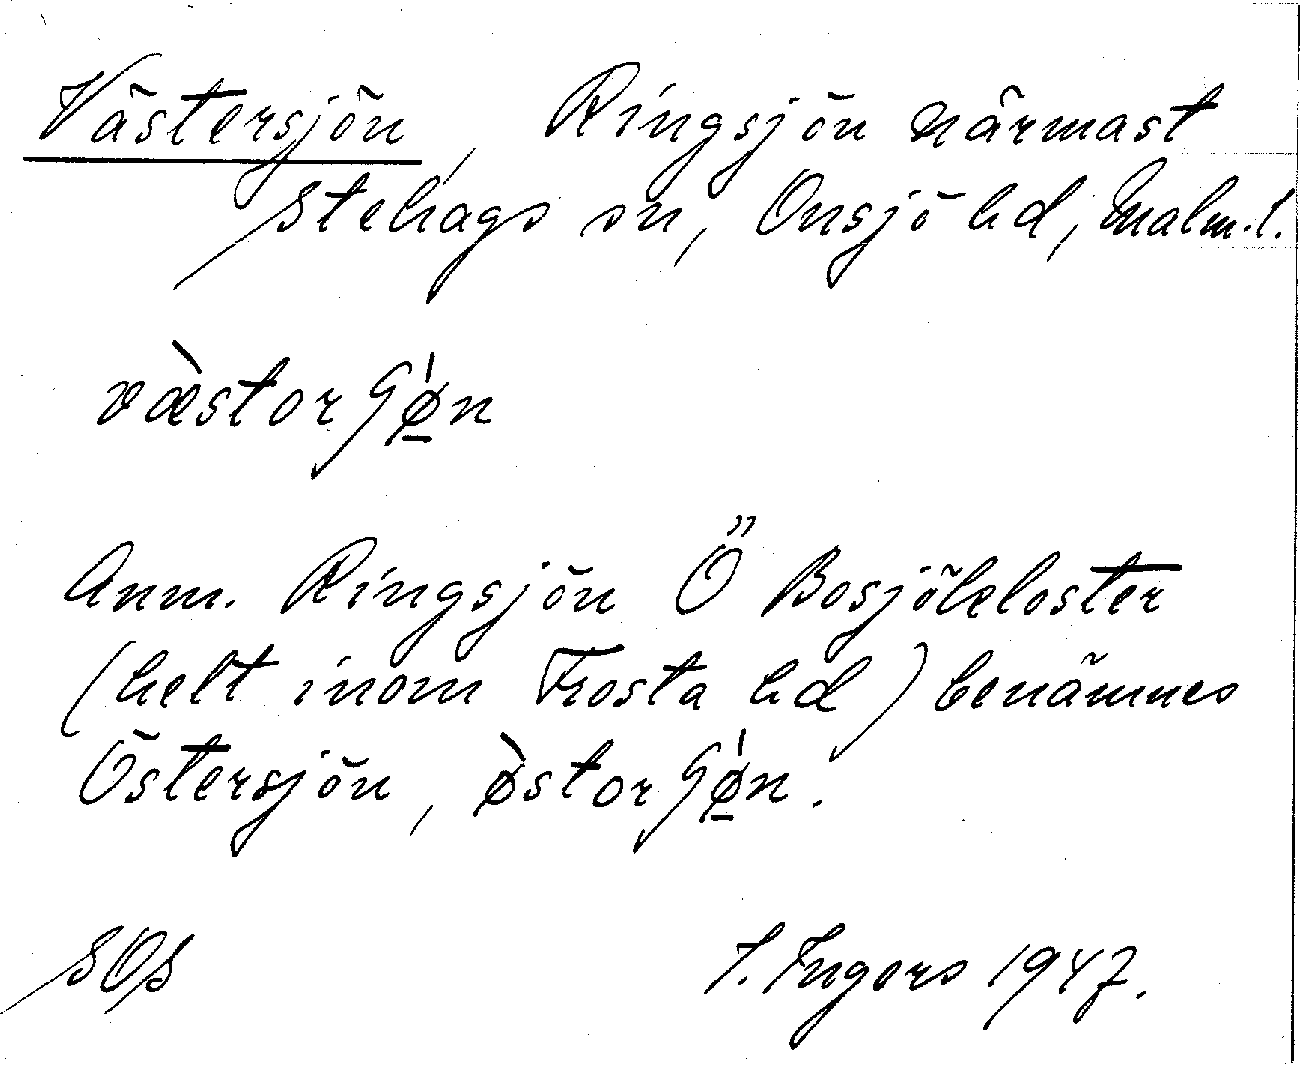 Västersjön, Ringsjön närmast
Stehags sn, Onsjö hd, Malm.l.
væ̀storʃǿ̱n
Anm. Ringsjön Ö" Bosjökloster
(helt inom Frosta hd) benämnes
Östersjön, ø̀storʃǿ̱n.
SOS I. Ingers 1947.